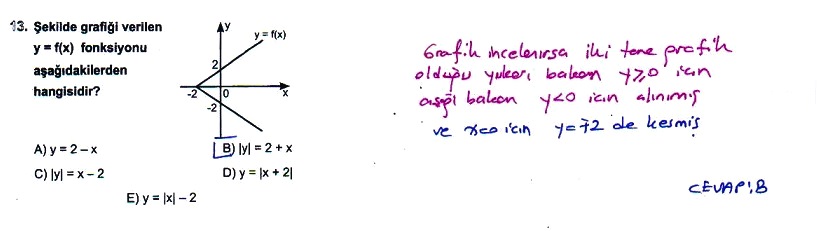 13. Şekilde grafiği verilen
y = f(x) fonksiyonu
aşağıdakilerden
hangisidir?
y
y = f(x)
2
-2
0
x
-2
A) y = 2 – x
B) |y| = 2 + x
C) |y| = x – 2
D) y = |x + 2|
E) y = |x| – 2
Grafik incelenirse iki tane grafik
olduğu yukarı bakan y≥0 için
aşağı bakan y<0 için alınmış
ve x=0 için y=∓2 de kesmiş
CEVAP:B